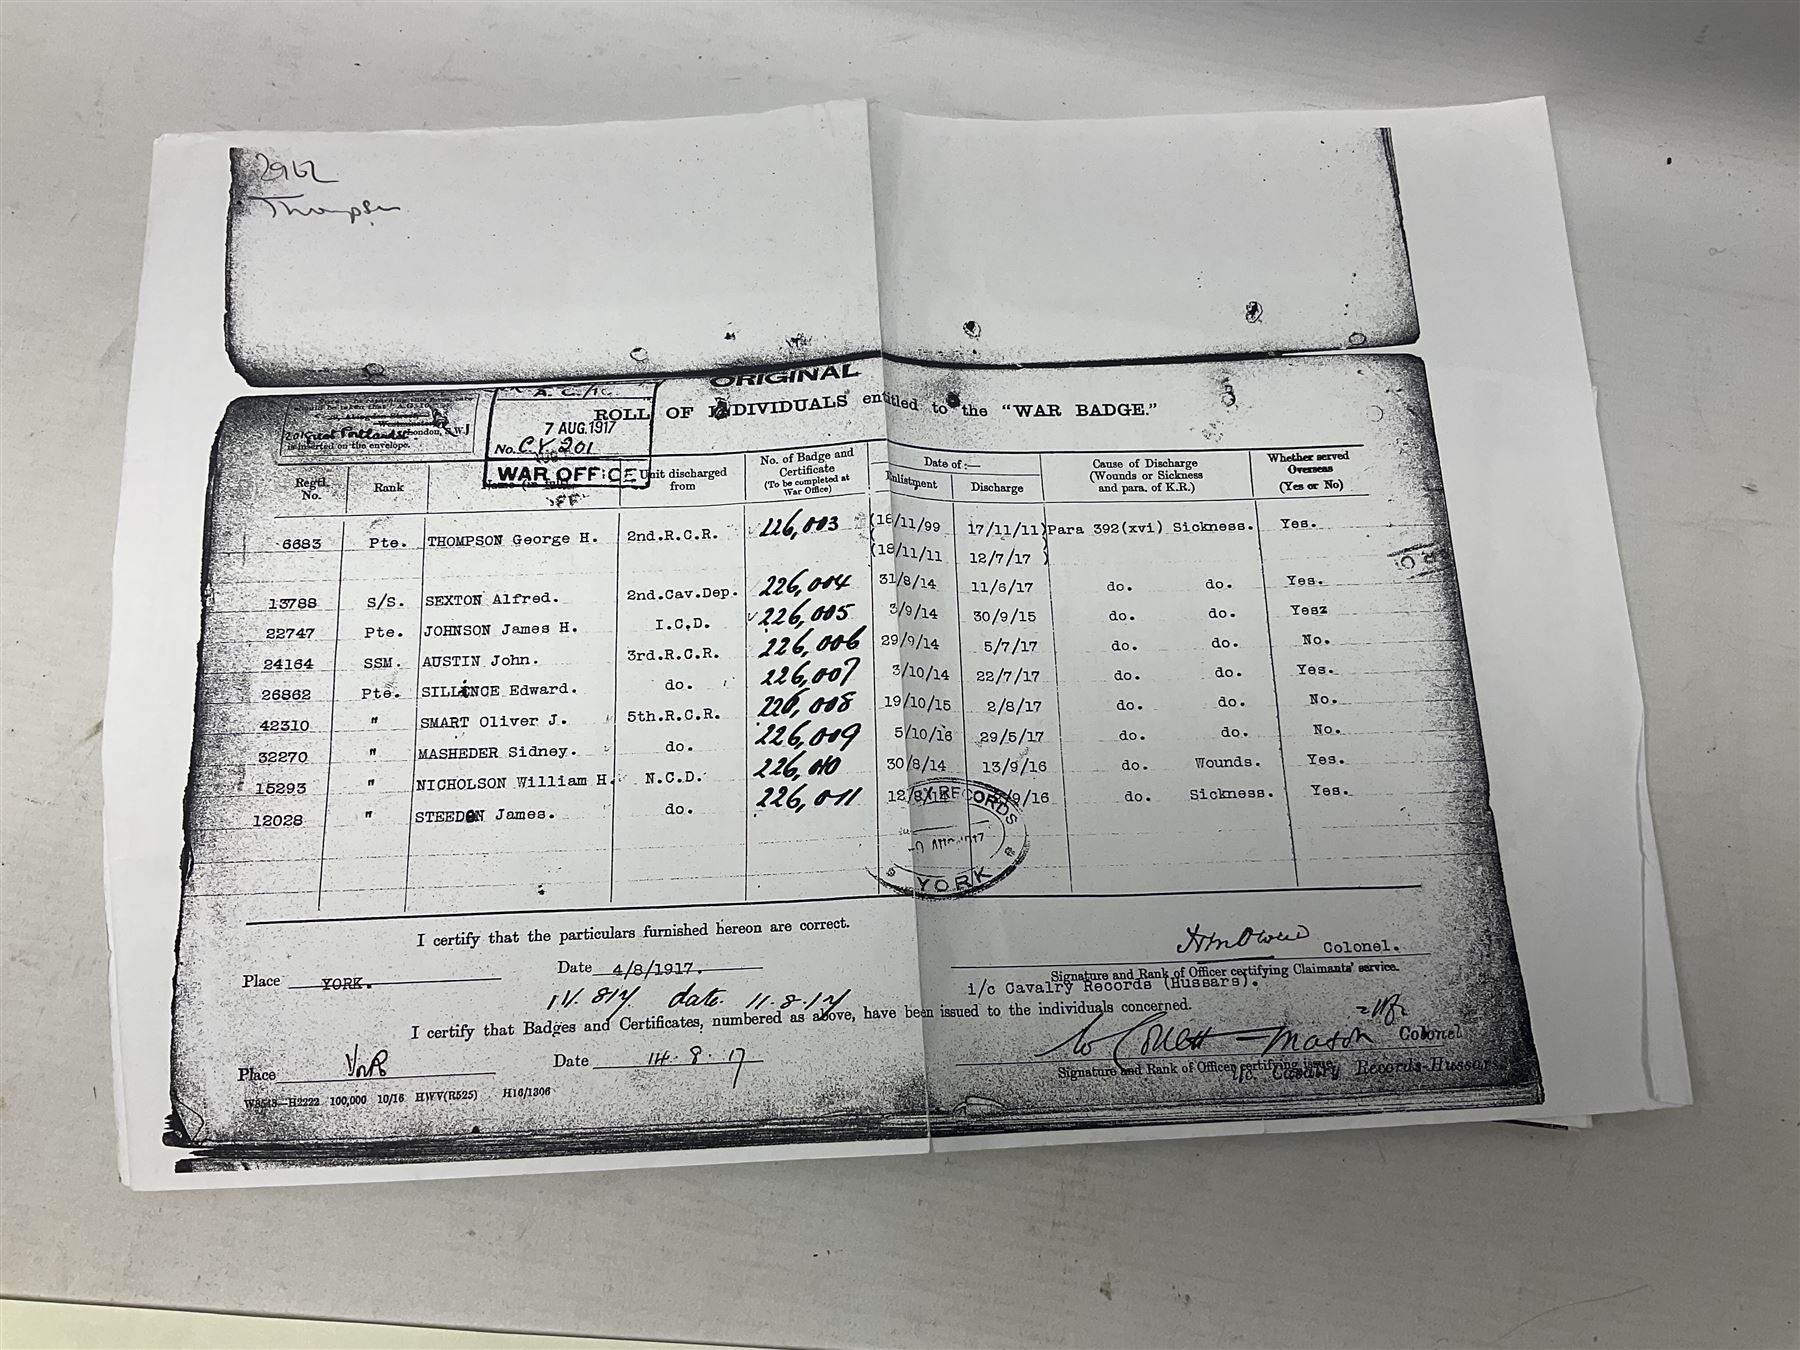 2962
Thompson
ORIGINAL
ROLL OF INDIVIDUALS entitled to the "WAR BADGE."
3
7 AUG. 1917
No. C.Y. 201
WAR OFFICE
Great Portland St.
is inserted on the envelope.
Regtl. No. Rank Unit discharged from No. of Badge and Certificate (To be completed at War Office) Date of:— Enlistment Discharge Cause of Discharge (Wounds or Sickness and para. of K.R.) Whether served Overseas (Yes or No)
6683 Pte. THOMPSON George H. 2nd.R.C.R. 226,003 (18/11/99 17/11/11) Para 392(xvi) Sickness. Yes.
(18/11/11 12/7/17 )
13788 S/S. SEXTON Alfred. 2nd.Cav.Dep. 226,004 31/8/14 11/6/17 do. do. Yes.
22747 Pte. JOHNSON James H. I.C.D. 226,005 3/9/14 30/9/15 do. do. Yesz
24164 SSM. AUSTIN John. 3rd.R.C.R. 226,006 29/9/14 5/7/17 do. do. No.
26862 Pte. SILLINCE Edward. do. 226,007 3/10/14 22/7/17 do. do. Yes.
42310 " SMART Oliver J. 5th.R.C.R. 226,008 19/10/15 2/8/17 do. do. No.
32270 " MASHEDER Sidney. do. 226,009 5/10/16 29/5/17 do. do. No.
15293 " NICHOLSON William H. N.C.D. 226,010 30/8/14 13/9/16 do. Wounds. Yes.
12028 " STEEDON James. do. 226,011 12/8/14 /9/16 do. Sickness. Yes.
RECORDS
YORK
I certify that the particulars furnished hereon are correct.
Place YORK. Date 4/8/1917. Colonel.
Signature and Rank of Officer certifying Claimants' service.
i/c Cavalry Records (Hussars).
date 11.8.17
I certify that Badges and Certificates, numbered as above, have been issued to the individuals concerned.
Place York Date 14.8.17 Mason Colonel
Signature and Rank of Officer certifying issue.
i/c Cavalry Records-Hussars
W8543—H2222 100,000 10/16 HWV(R525) H16/1306